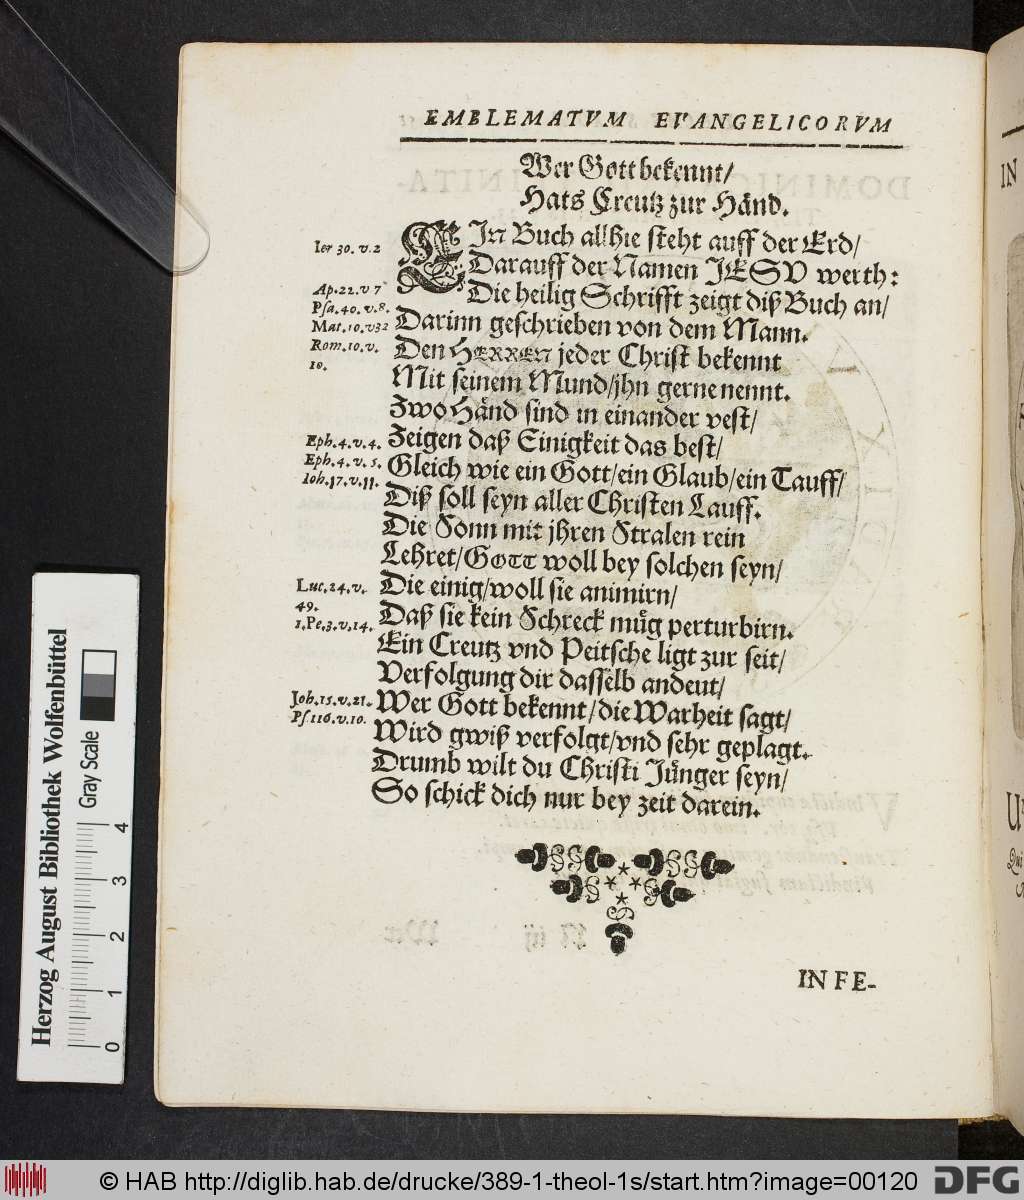 EMBLEMATVM EVANGELICORVM
Wer Gott bekennt/
Hats Creutz zur Händ.
EJn Buch allhie steht auff der Erd/
Ier 30. v. 2
Darauff der Namen JESV werth:
Die heilig Schrifft zeigt diß Buch an/
Ap. 22. v 7
Psa. 40. v. 8.
Darinn geschrieben von dem Mann.
Mat. 10. v 32
Den HERREN jeder Christ bekennt
Rom. 10. v.
10.
Mit seinem Mund/jhn gerne nennt.
Zwo Händ sind in einander vest/
Zeigen daß Einigkeit das best/
Eph. 4. v. 4.
Gleich wie ein Gott/ein Glaub/ein Tauff/
Eph. 4. v. 5.
Ioh. 17. v. 11.
Diß soll seyn aller Christen Lauff.
Die Sonn mit jhren Stralen rein
Lehret/GOTT woll bey solchen seyn/
Die einig/woll sie animirn/
Luc. 24. v.
49.
Daß sie kein Schreck müg perturbirn.
1. Pe. 3. v. 14.
Ein Creutz vnd Peitsche ligt zur seit/
Verfolgung dir dasselb andeut/
Wer Gott bekennt/die Warheit sagt/
Joh. 15. v. 21.
Ps. 116. v. 10.
Wird gwiß verfolgt/vnd sehr geplagt.
Drumb wilt du Christi Jünger seyn/
So schick dich nur bey zeit darein.
IN FE-
Herzog August Bibliothek Wolfenbüttel
Gray Scale
0 1 2 3 4
IN
© HAB http://diglib.hab.de/drucke/389-1-theol-1s/start.htm?image=00120
DFG